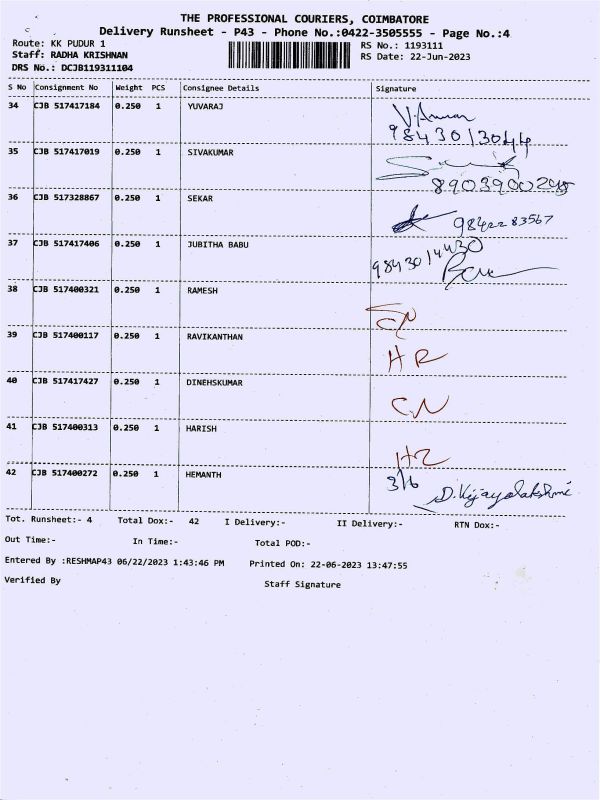 THE PROFESSIONAL COURIERS, COIMBATORE
Delivery Runsheet - P43 - Phone No.:0422-3505555 - Page No.:4
Route: KK PUDUR 1
RS No.: 1193111
Staff: RADHA KRISHNAN
RS Date: 22-Jun-2023
DRS No.: DCJB119311104
S No Consignment No Weight PCS Consignee Details Signature
34 CJB 517417184 0.250 1 YUVARAJ
9843013044
35 CJB 517417019 0.250 1 SIVAKUMAR
36 CJB 517328867 0.250 1 SEKAR
9842283567
37 CJB 517417406 0.250 1 JUBITHA BABU
9843014430
38 CJB 517400321 0.250 1 RAMESH
39 CJB 517400117 0.250 1 RAVIKANTHAN
HR
40 CJB 517417427 0.250 1 DINEHSKUMAR
CN
41 CJB 517400313 0.250 1 HARISH
HR
42 CJB 517400272 0.250 1 HEMANTH
3/6
D.Vijayalakshmi
Tot. Runsheet:- 4 Total Dox:- 42 I Delivery:- II Delivery:- RTN Dox:-
Out Time:- In Time:- Total POD:-
Entered By :RESHMAP43 06/22/2023 1:43:46 PM Printed On: 22-06-2023 13:47:55
Verified By Staff Signature